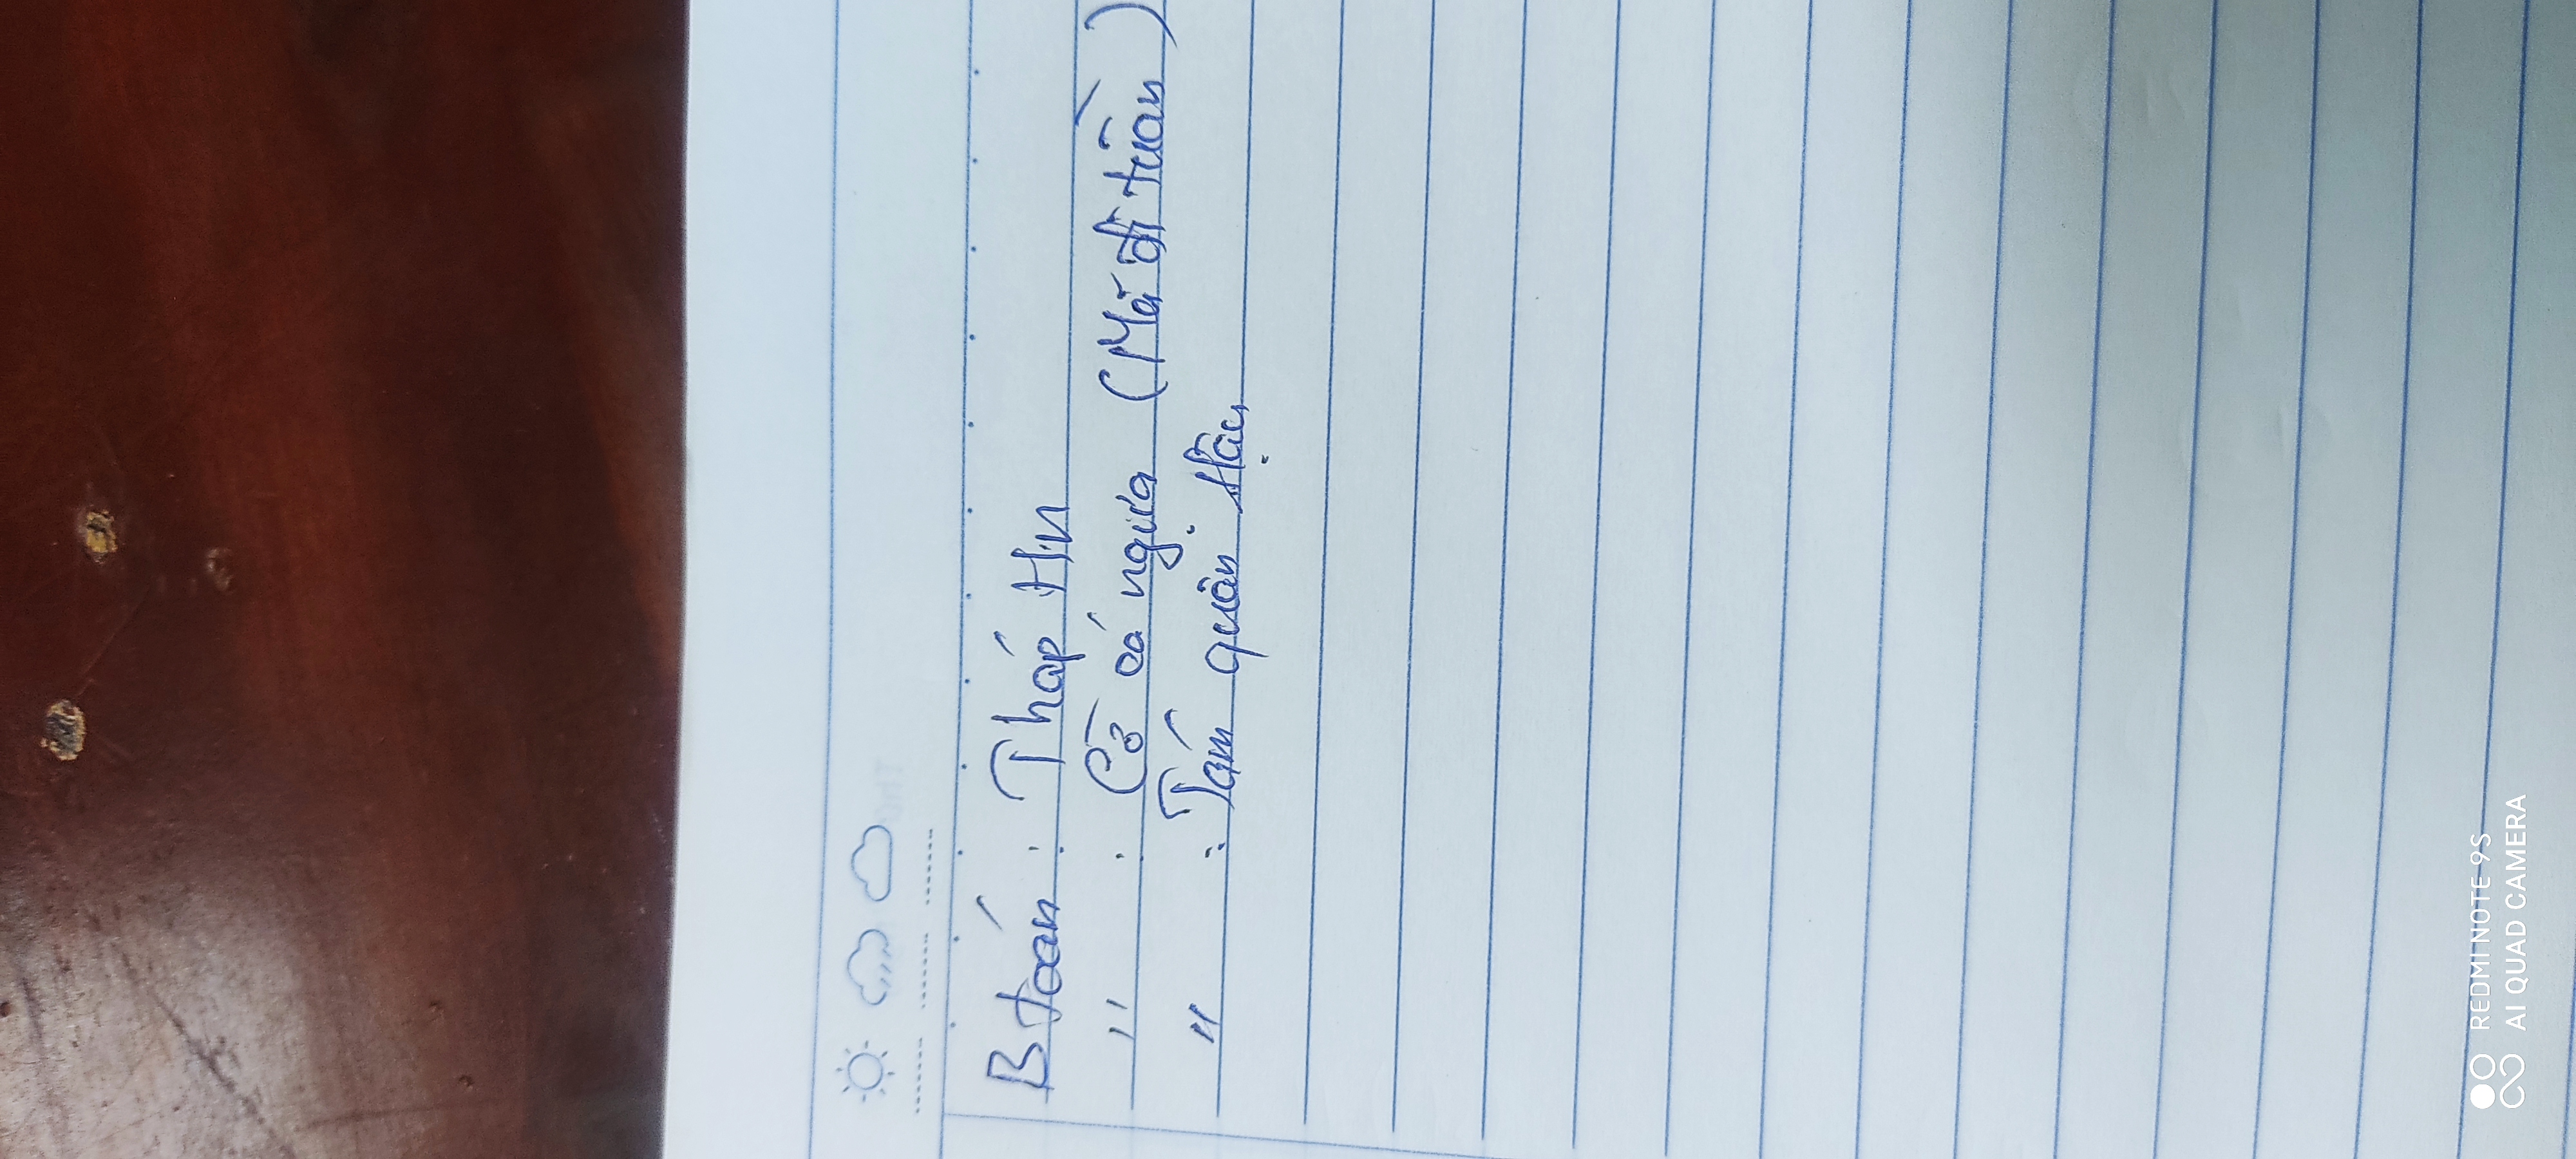 B toán : Tháp HN
" : Cờ cá ngựa (Mã đi tuần)
" : Tám quân Hậu
REDMI NOTE 9S
AI QUAD CAMERA